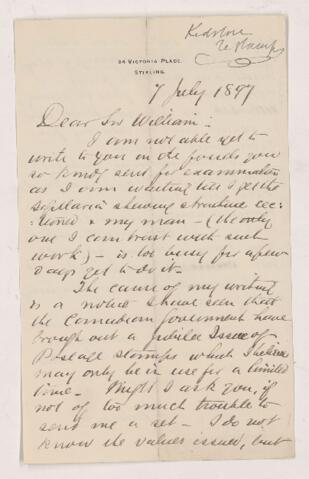 Kidston
re stamps
24 VICTORIA PLACE,
STIRLING.
7 July 1897
Dear Sir William:
I am not able yet to
write to you on the fossils you
so kindly sent for examination
as I am waiting till I get the
sigillaria shewing structure sec-
tioned & my man - (the only
one I can trust with such
work) - is too busy for a few
days yet to do it.
The cause of my writing
is a notice I have seen that
the Canadian Government have
brought out a Jubilee Issue of
Postage stamps which I believe
may only be in use for a limited
time - Might I ask you, if
not of too much trouble to
send me a set - I do not
know the values issued, but